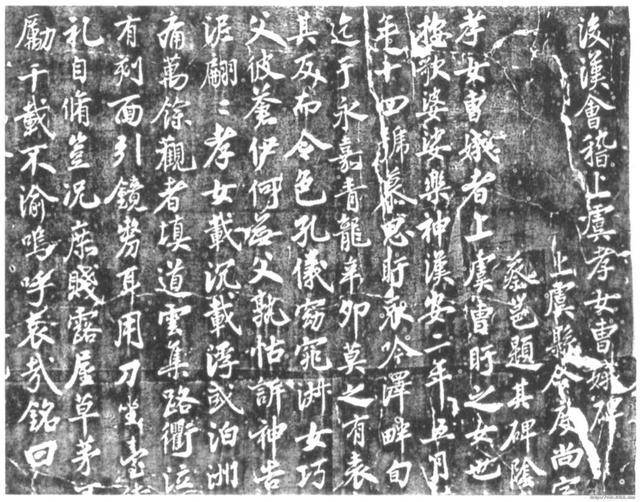 後漢會稽上虞孝女曹娥碑
上虞縣令度尚字
蔡邕題其碑陰
孝女曹娥者上虞曹盱之女也
撫歌婆娑樂神漢安二年五月
年十四號慕思盱哀吟澤畔旬
迄于永嘉青龍辛卯莫之有表
其反而令色孔儀窈窕淑女巧
父彼蒼伊何無父孰怙訴神告
泥翩〻孝女載沉載浮或泊洲
痛萬餘觀者填道雲集路衢泣
有刻面引鏡剺耳用刀坐臺
礼自脩豈況庶賤露屋草茅
勵千載不渝嗚呼哀哉銘曰